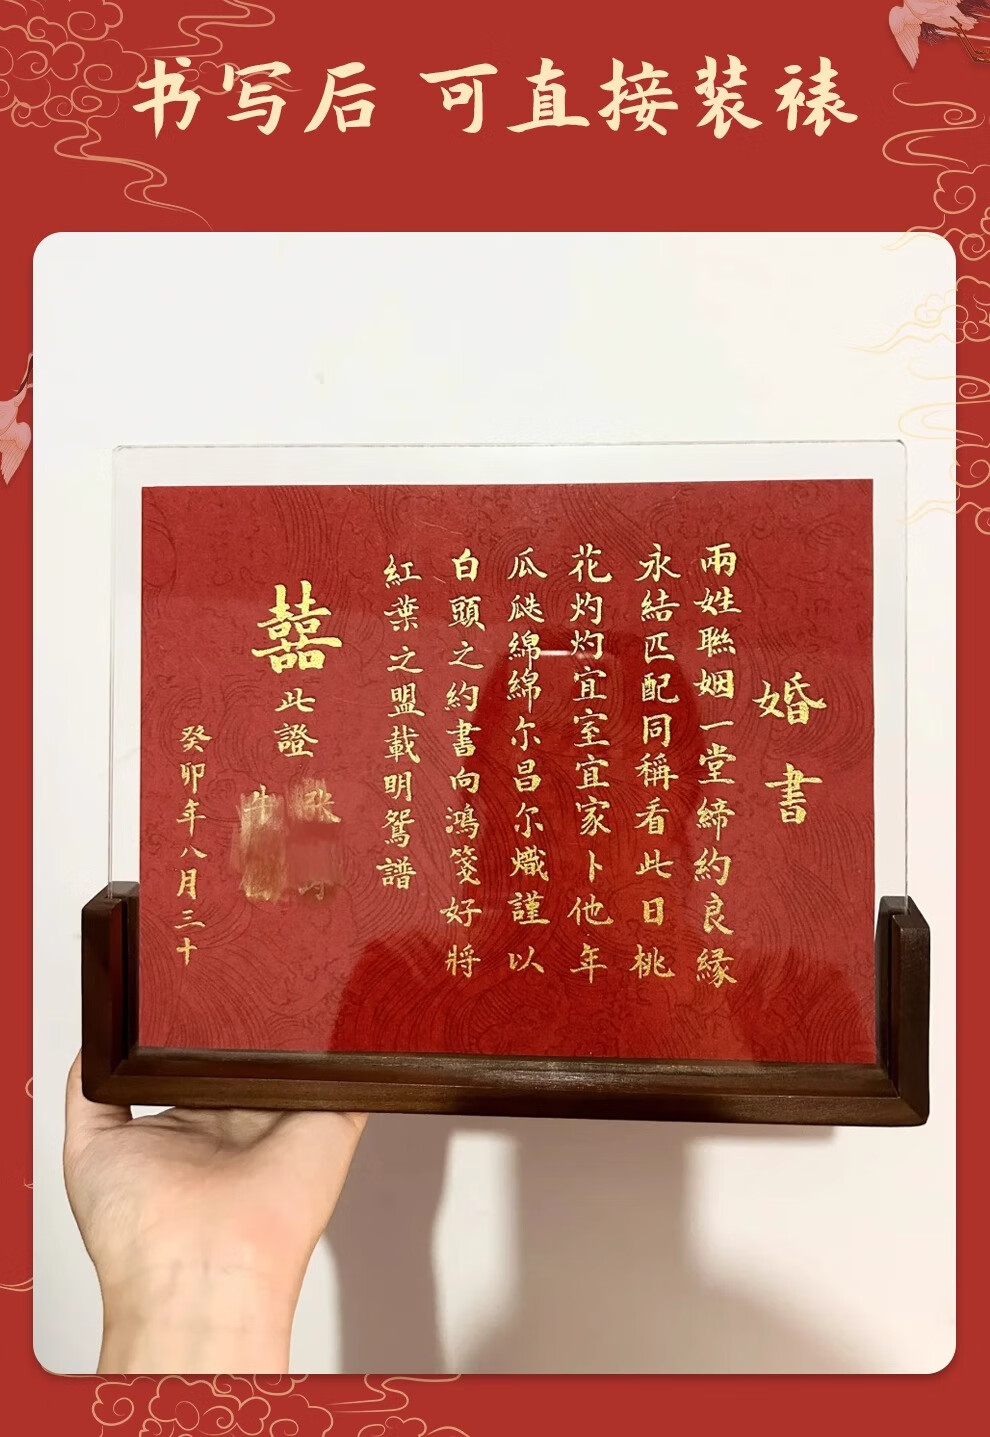 书写后 可直接装裱
婚書
兩姓聯姻一堂締約良緣
永結匹配同稱看此日桃
花灼灼宜室宜家卜他年
瓜瓞綿綿尔昌尔熾謹以
白頭之約書向鴻箋好將
紅葉之盟載明鴛譜
囍此證
张
牛
癸卯年八月三十